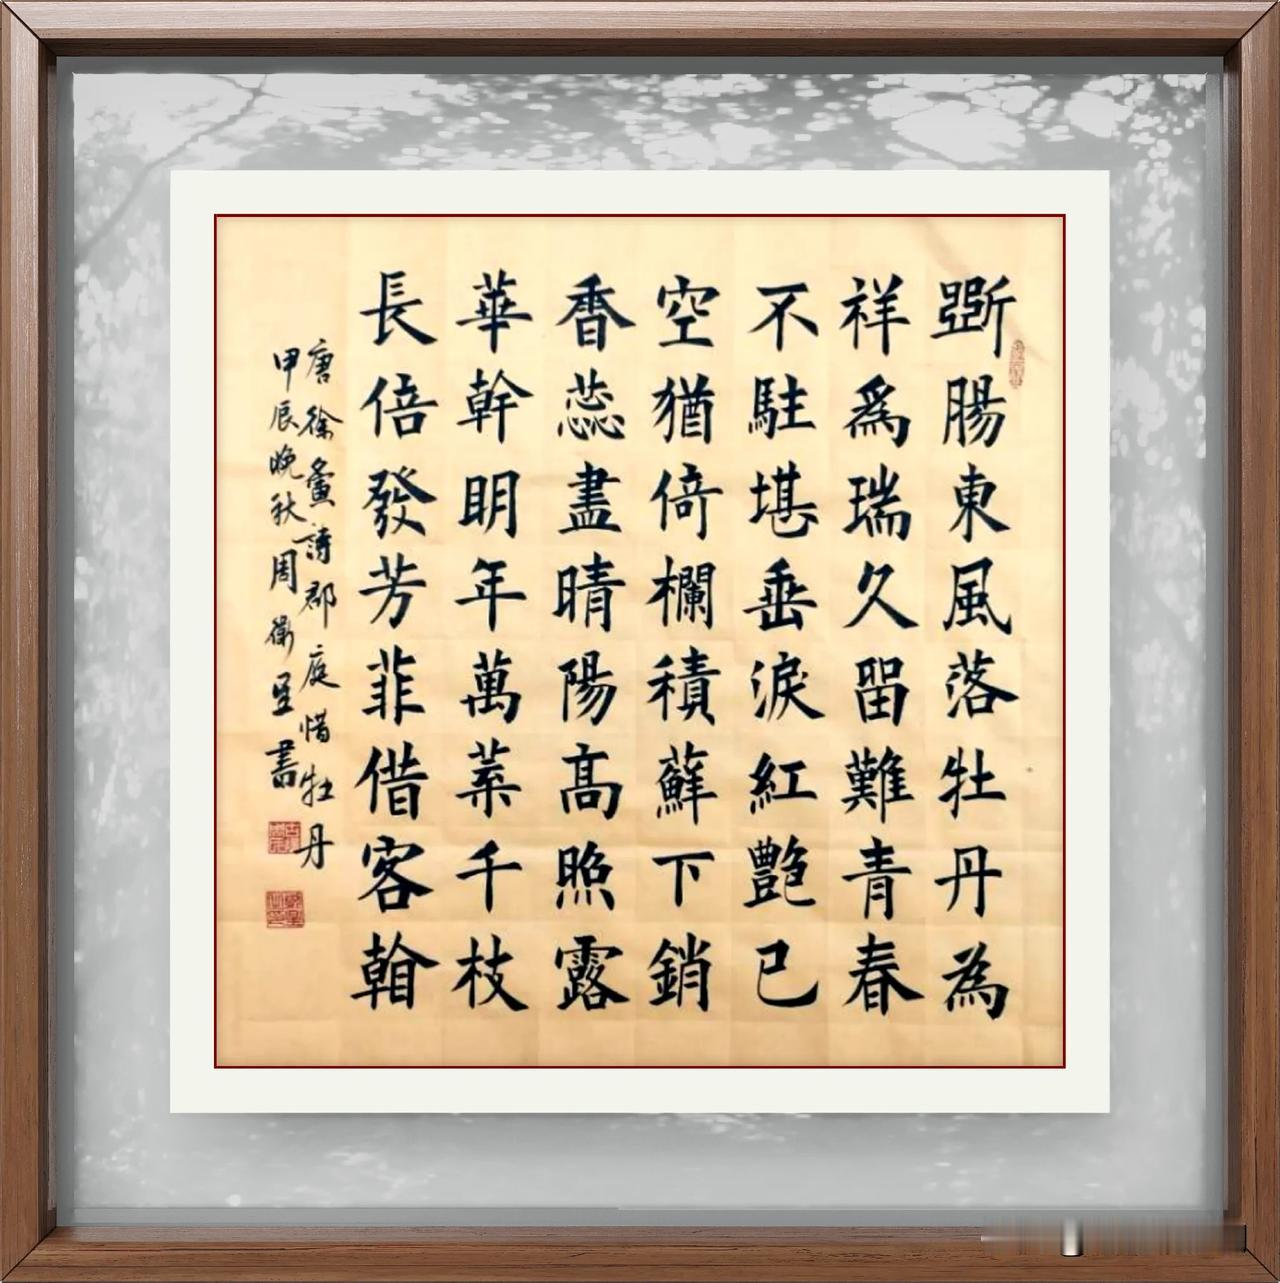 斷腸東風落牡丹為
祥爲瑞久留難青春
不駐堪垂淚紅艷已
空猶倚欄積蘚下銷
香蕊盡晴陽髙照露
華幹明年萬葉千枝
長倍發芳菲借客翰
唐徐夤詩郡庭惜牡丹
甲辰晚秋周衛星書